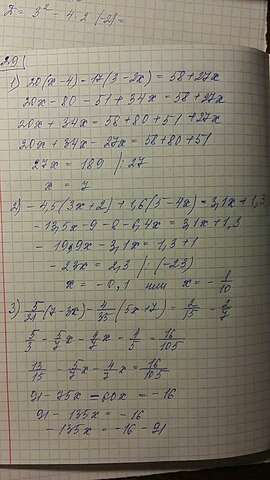 2 = 3² - 4 · 2 (-2) =
29
1) 20(x-4) - 17(3-2x) = 58+27x
20x - 80 - 51 + 34x = 58 + 27x
20x + 34x = 58 + 80 + 51 + 27x
20x + 34x - 27x = 58 + 80 + 51
27x = 189 | : 27
x = 7
2) -4,5(3x+2) + 1,6(5-4x) = 3,1x + 1,3
-13,5x - 9 - 8 - 6,4x = 3,1x + 1,3
-19,9x - 3,1x = 1,3 + 1
-23x = 2,3 | : (-23)
x = -0,1 или x = -1/10
3) 5/21 (7-3x) - 4/35 (5x+7) = 2/15 - 2/7
5/3 - 5/7 x - 4/7 x - 4/5 = -16/105
13/15 - 5/7 x - 4/7 x = -16/105
91 - 75x - 60x = -16
91 - 135x = -16
-135x = -16 - 91